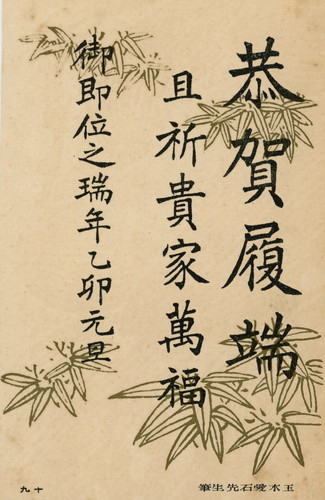 恭賀履端
且祈貴家萬福
御即位之瑞年乙卯元旦
玉木愛石先生筆
十九